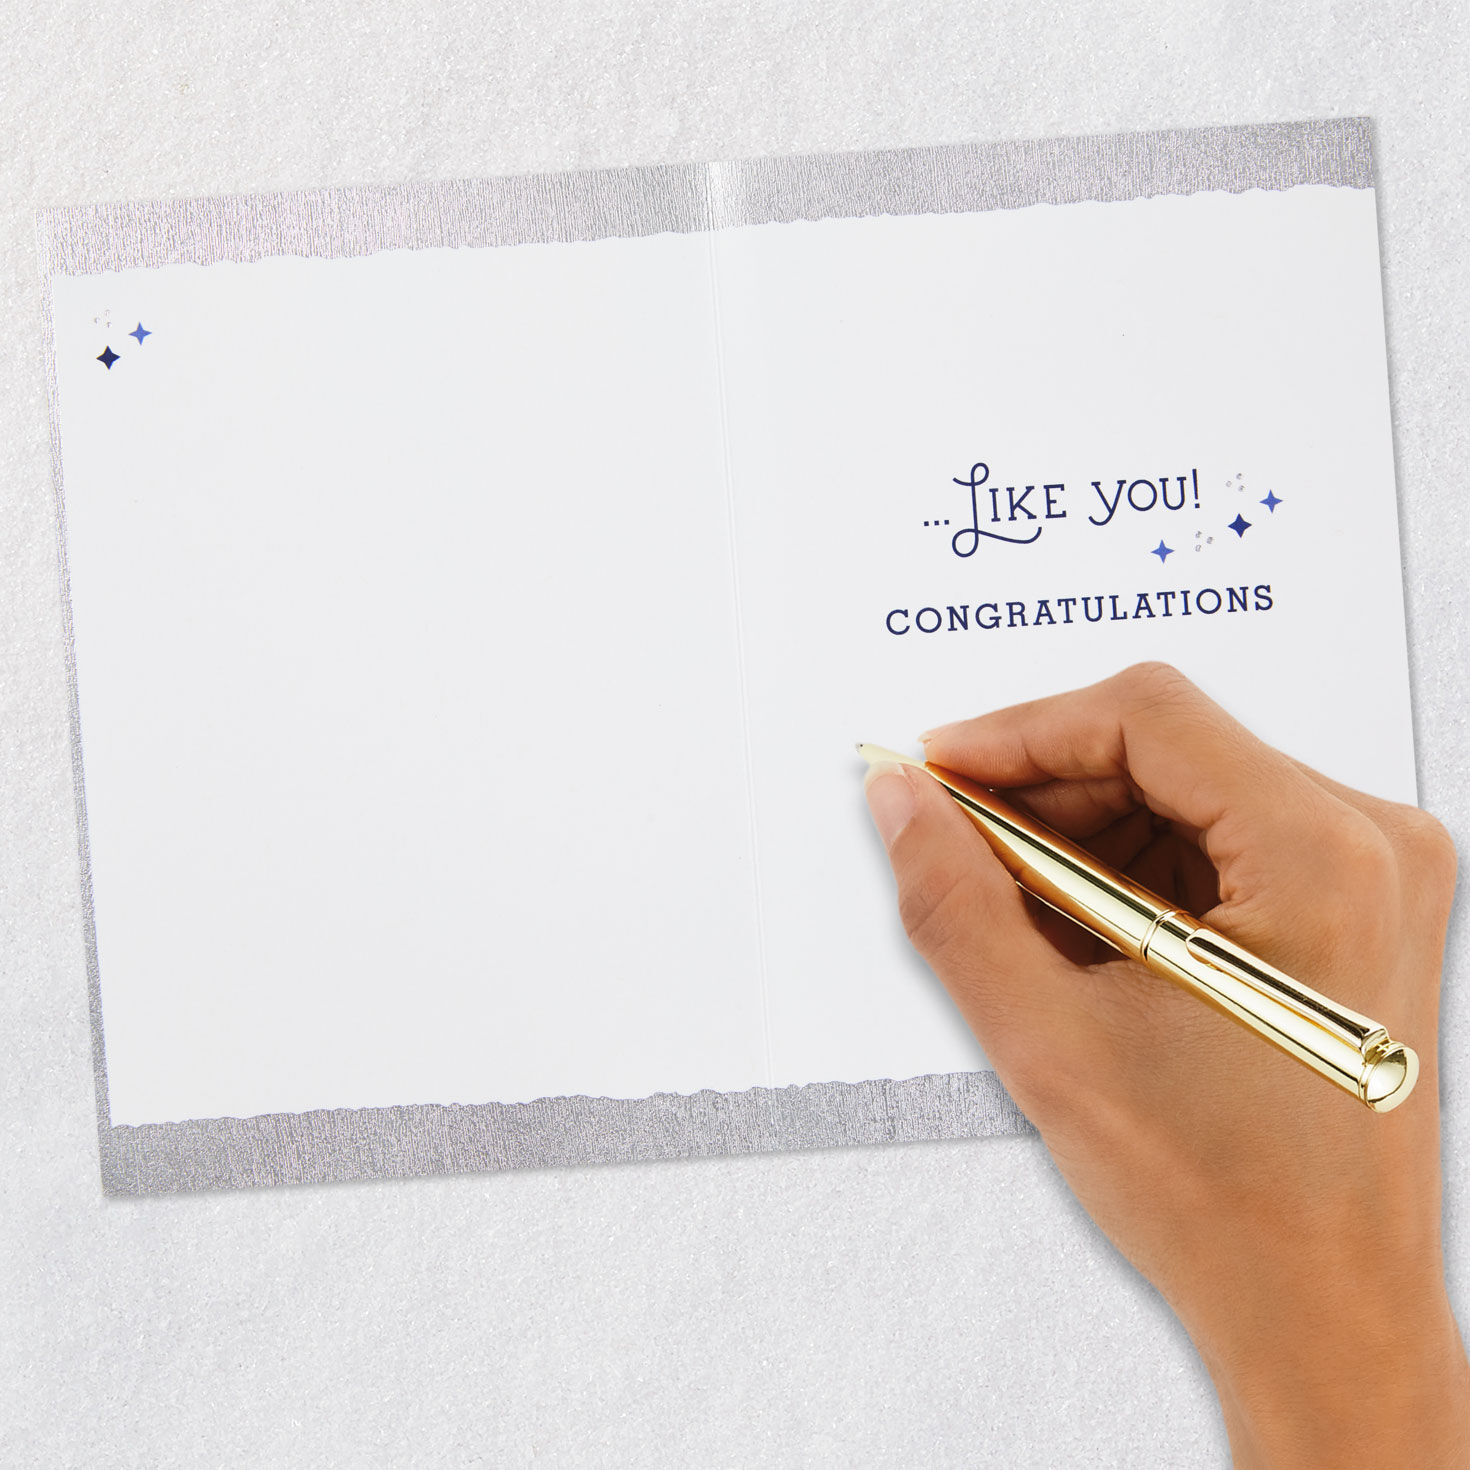 ...Like you!
CONGRATULATIONS